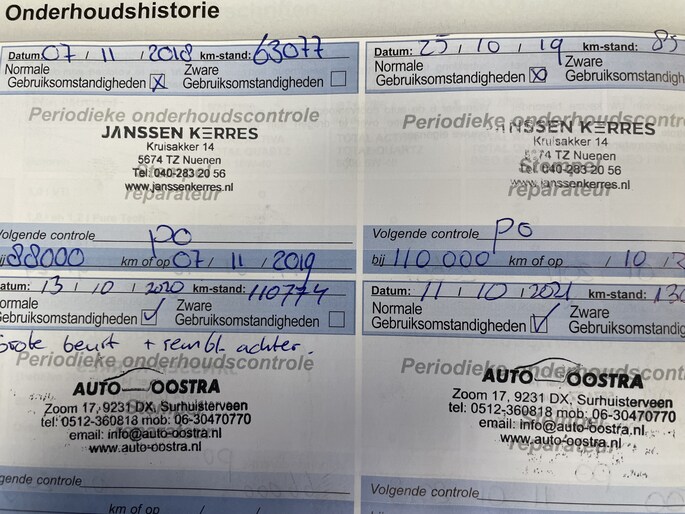 Onderhoudshistorie
Datum: 07 / 11 / 2018 km-stand: 63077
Normale Zware
Gebruiksomstandigheden Gebruiksomstandigheden
Periodieke onderhoudscontrole
JANSSEN KERRES
Kruisakker 14
5674 TZ Nuenen
Tel: 040-283 20 56
www.janssenkerres.nl
reparateur
Volgende controle PO
bij 88000 km of op 07 / 11 / 2019
Datum: 25 / 10 / 19 km-stand: 83
Normale Zware
Gebruiksomstandigheden Gebruiksomstandigh
Periodieke onderhoudscontrole
JANSSEN KERRES
Kruisakker 14
74 TZ Nuenen
Stempel
Tel: 040-283 20 56
www.janssenkerres.nl
reparateur
Volgende controle PO
bij 110.000 km of op / 10 / 2
Datum: 13 / 10 / 2020 km-stand: 110774
ormale Zware
Gebruiksomstandigheden Gebruiksomstandigheden
Grote beurt + rembl. achter.
Periodieke onderhoudscontrole
AUTO OOSTRA
Zoom 17, 9231 DX, Surhuisterveen
tel: 0512-360818 mob: 06-30470770
email: info@auto-oostra.nl
www.auto-oostra.nl
reparateur
gende controle
km of op / /
Datum: 11 / 10 / 2021 km-stand: 130
Normale Zware
Gebruiksomstandigheden Gebruiksomstandigh
Periodieke onderhoudscontrole
AUTO OOSTRA
Zoom 17, 9231 DX, Surhuisterveen
tel: 0512-360818 mob: 06-30470770
email: info@auto-oostra.nl
www.auto-oostra.nl
reparateur
Volgende controle